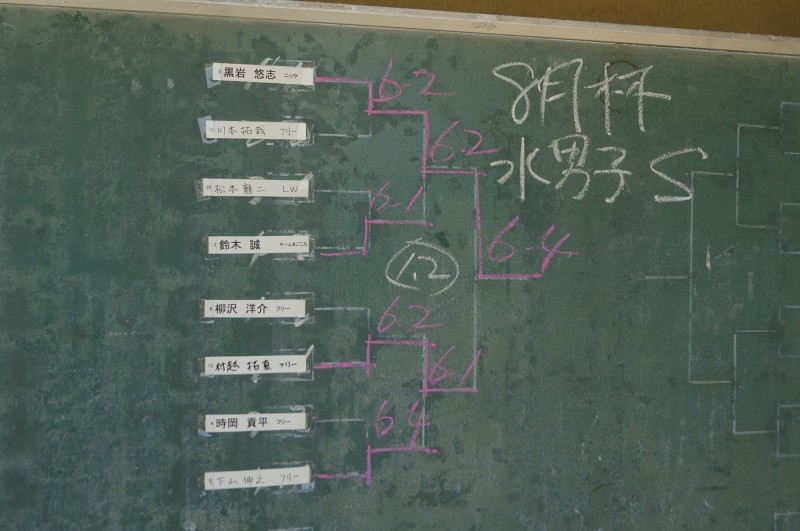 黒岩 悠志 ニッケ
川本拓哉 フリー
松本龍二 LW
鈴木 誠 チームまごころ
柳沢 洋介 フリー
村越 拓真 フリー
時岡 貢平 フリー
下山伸之 フリー
8月杯
水男子S
6-2
6-2
6-1
6-4
12
6-2
6-1
6-4